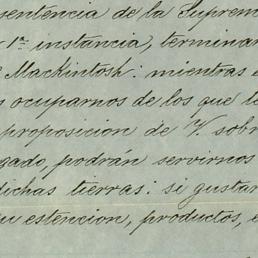 sentencia de la Suprem
1ª instancia, terminar
Mackintosh: mientras e
ocuparnos de los que le
proposicion de V. sobr
gado podrán servirnos
dichas tierras: si gustar
su estencion, productos, e